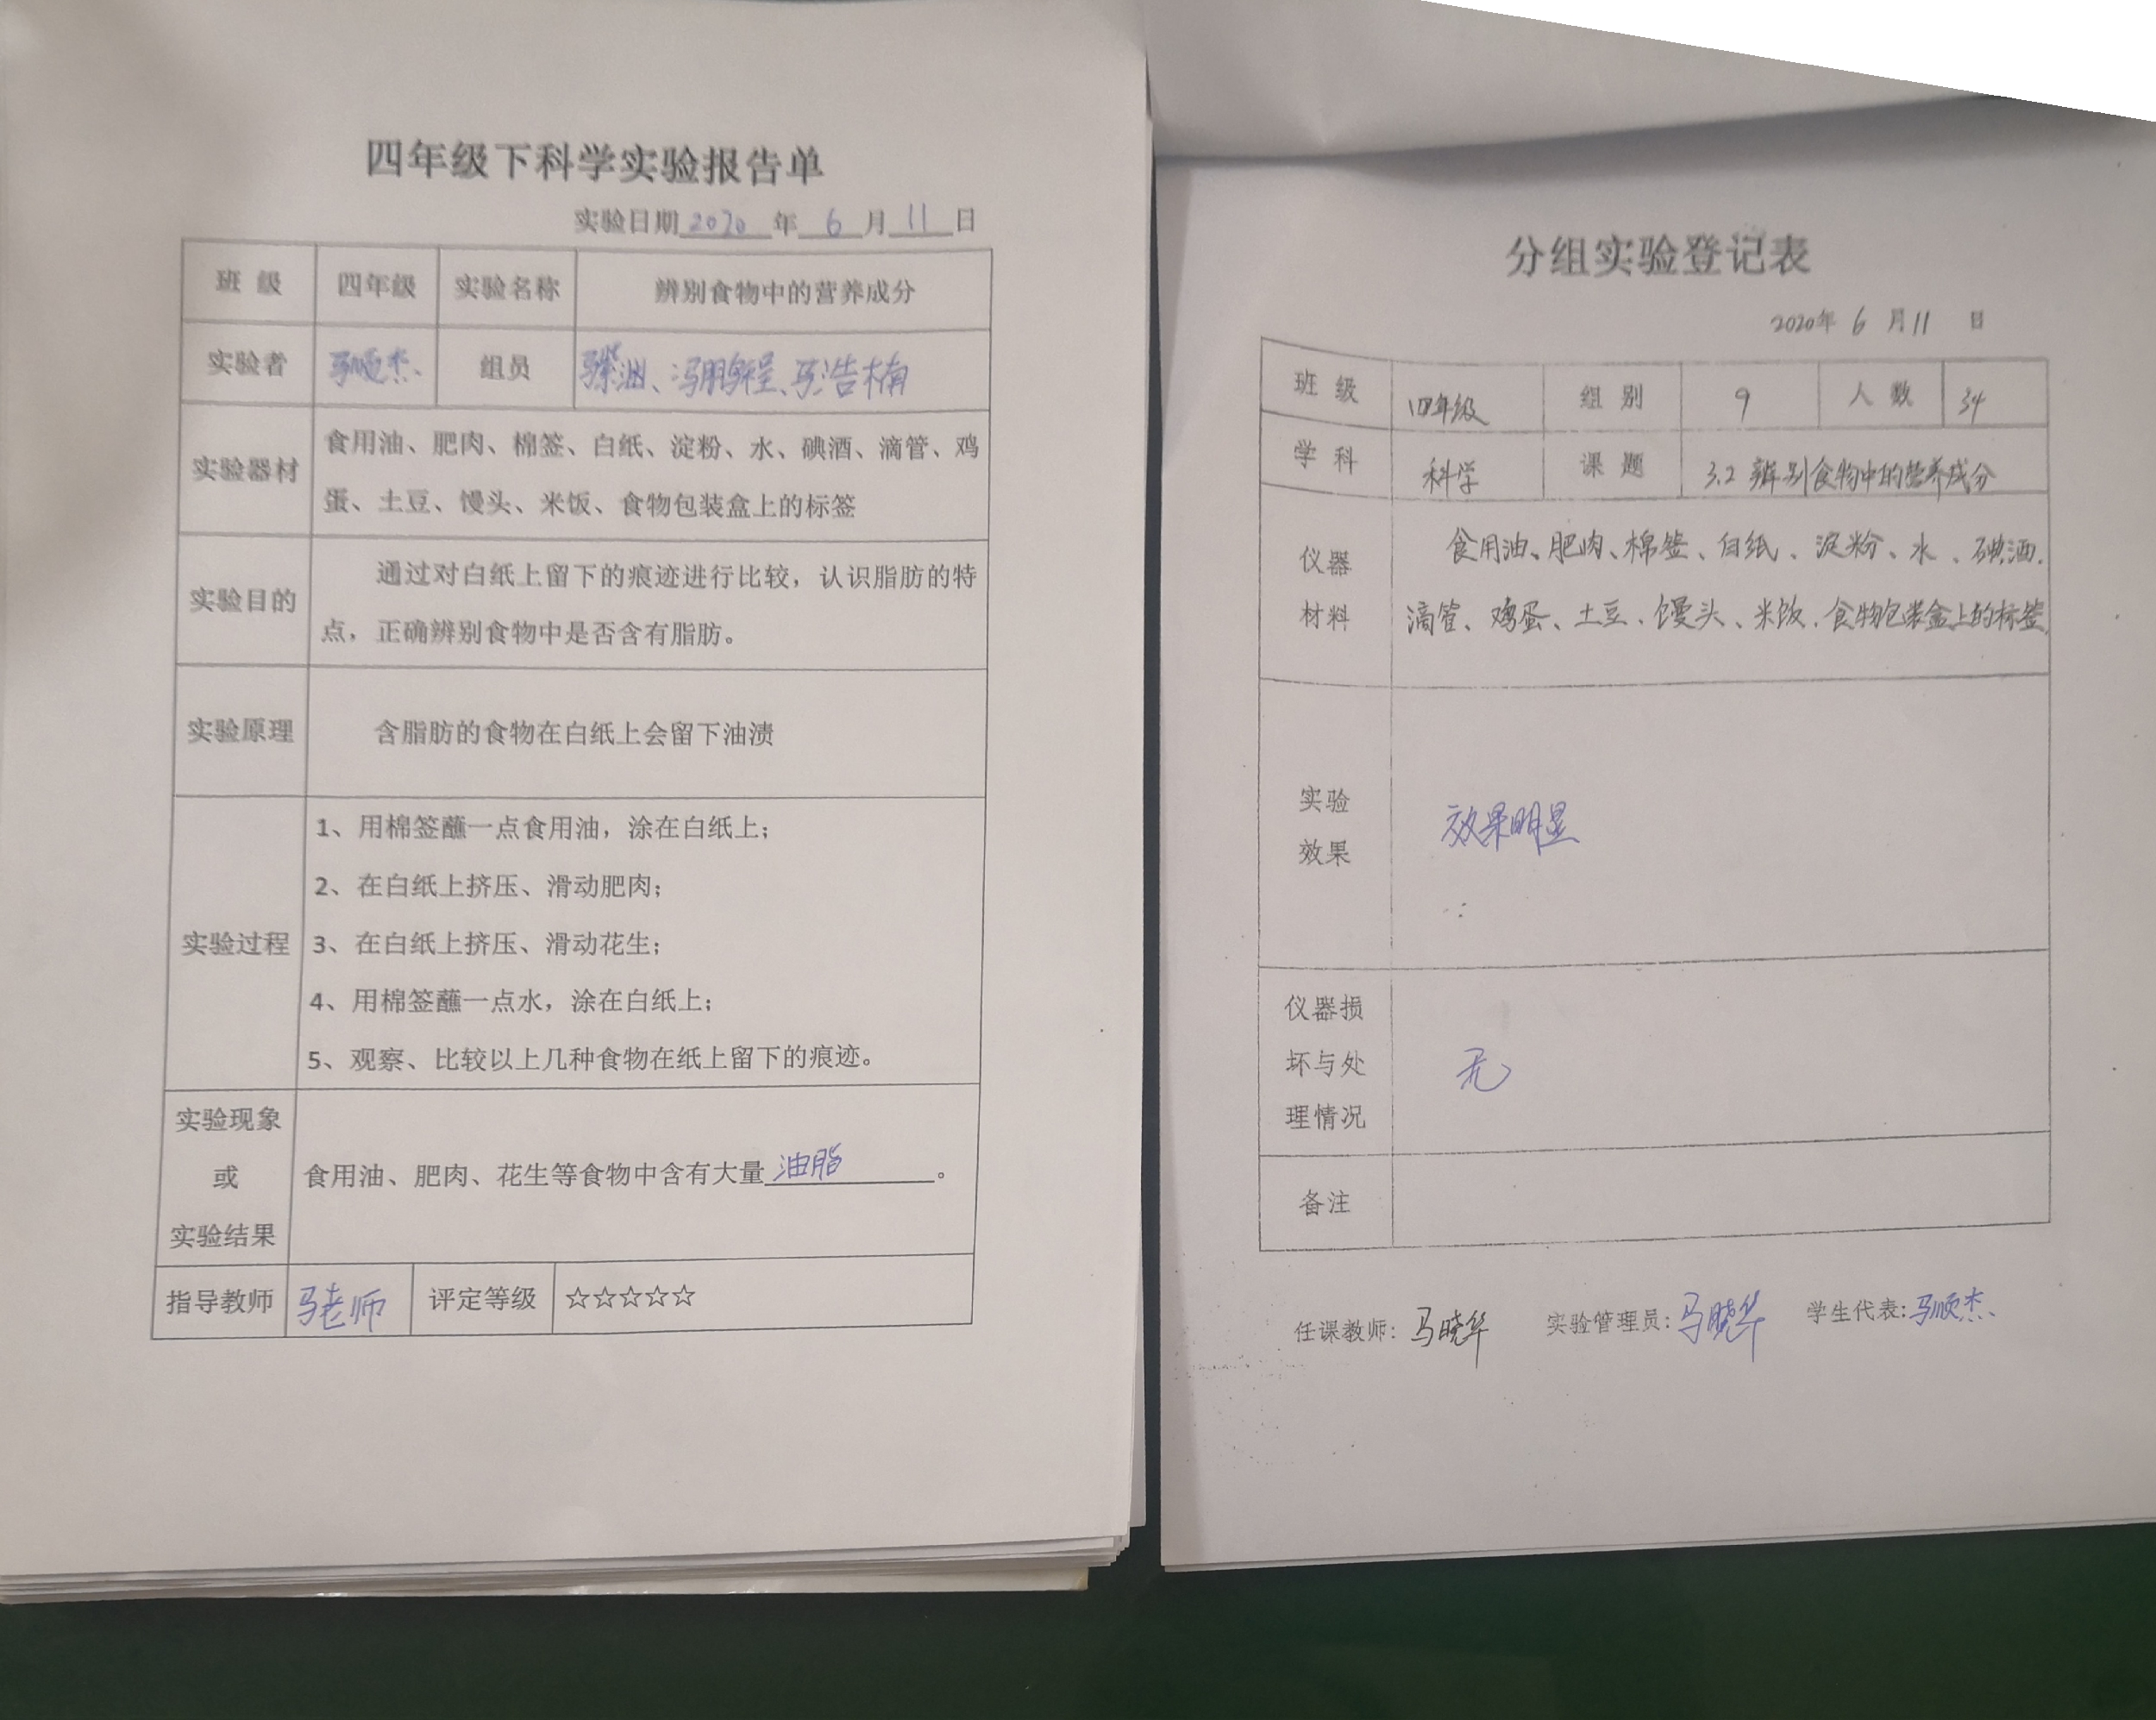 四年级下科学实验报告单
实验日期2020年6月11日
班 级 四年级 实验名称 辨别食物中的营养成分
实验者 马顺杰、 组员 冯鹏程、马浩楠
实验器材 食用油、肥肉、棉签、白纸、淀粉、水、碘酒、滴管、鸡
蛋、土豆、馒头、米饭、食物包装盒上的标签
实验目的 通过对白纸上留下的痕迹进行比较，认识脂肪的特
点，正确辨别食物中是否含有脂肪。
实验原理 含脂肪的食物在白纸上会留下油渍
实验过程
1、用棉签蘸一点食用油，涂在白纸上；
2、在白纸上挤压、滑动肥肉；
3、在白纸上挤压、滑动花生；
4、用棉签蘸一点水，涂在白纸上；
5、观察、比较以上几种食物在纸上留下的痕迹。
实验现象
或
实验结果
食用油、肥肉、花生等食物中含有大量油脂。
指导教师 马老师 评定等级 ☆☆☆☆☆
分组实验登记表
2020年 6 月 11 日
班 级 四年级 组 别 9 人 数 34
学 科 科学 课 题 3.2 辨别食物中的营养成分
仪器
材料
食用油、肥肉、棉签、白纸、淀粉、水、碘酒.
滴管、鸡蛋、土豆、馒头、米饭.食物包装盒上的标签.
实验
效果
效果明显
仪器损
坏与处
理情况
无
备注
任课教师: 马晓华 实验管理员: 马晓华 学生代表: 马顺杰、